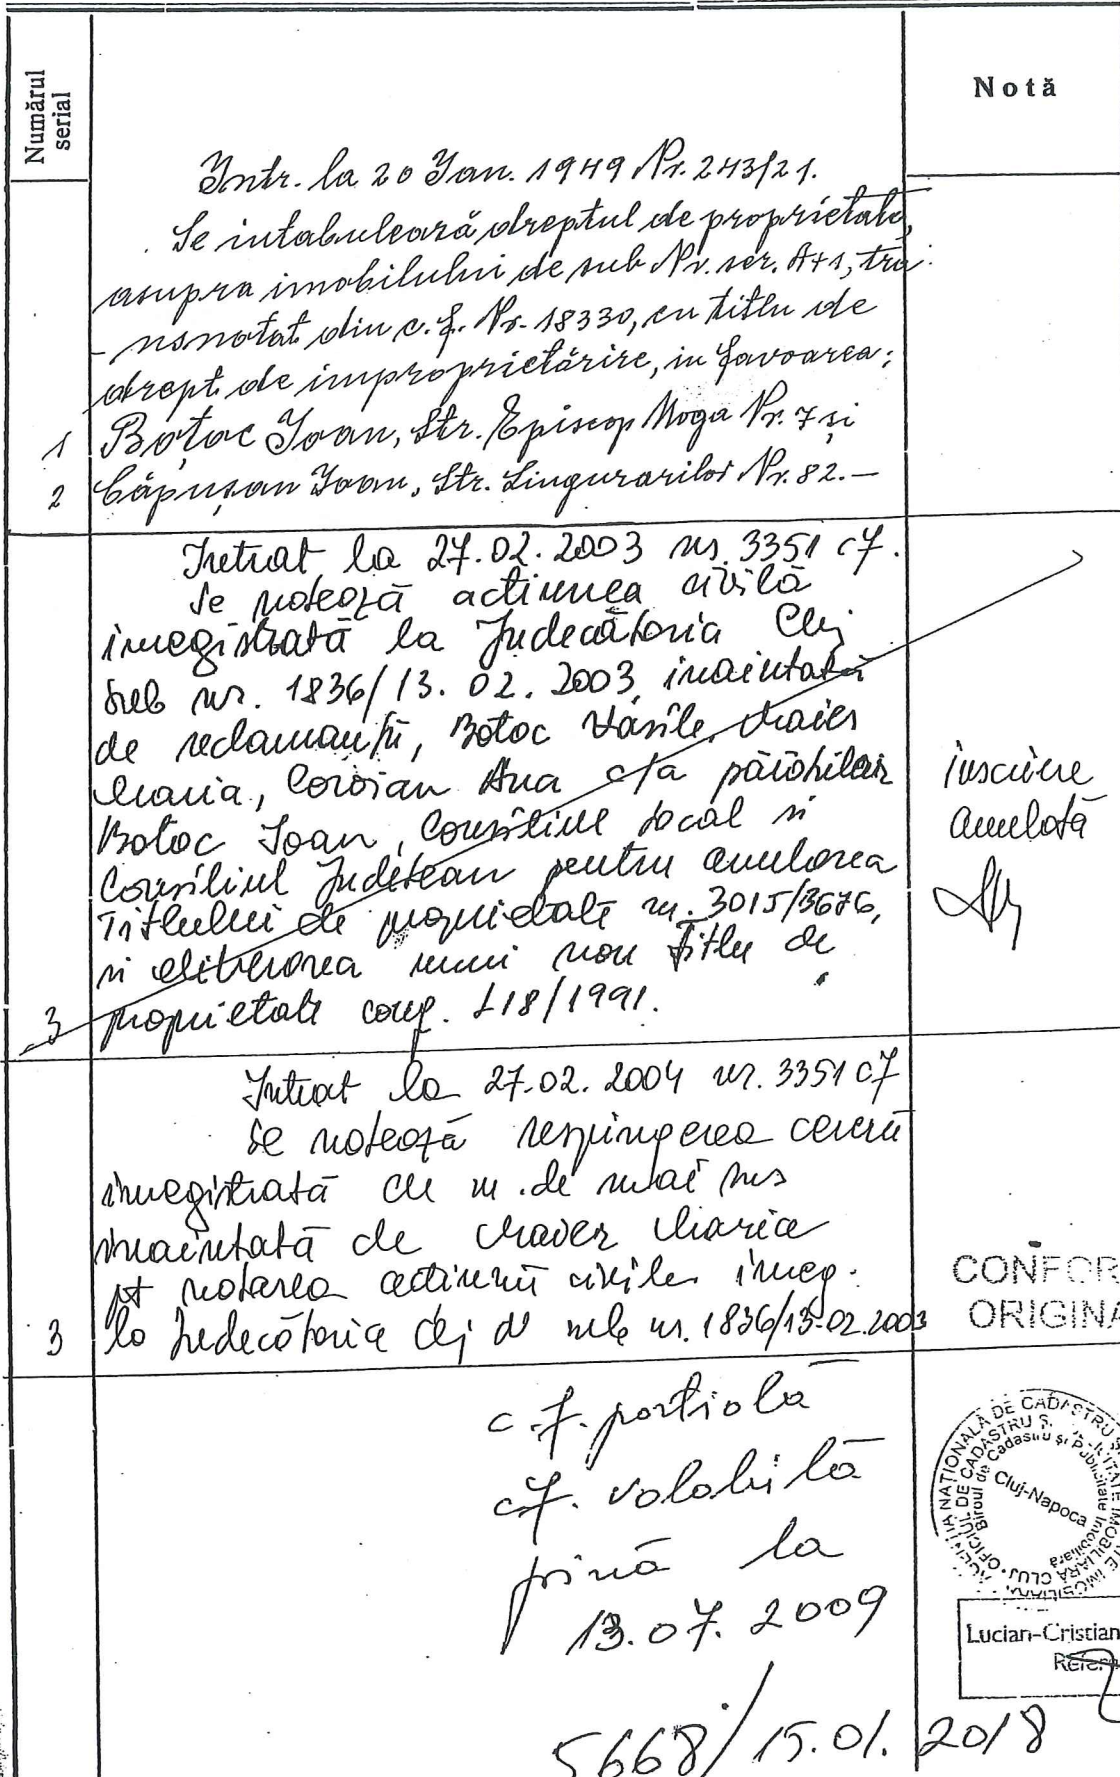 Numărul
serial
Notă
Intr. la 20 Ian. 1949 Nr. 243/21.
Se intabulează dreptul de proprietate,
asupra imobilului de sub Nr. ser. A+1, tra-
nsnotat din c.f. Nr. 18330, cu titlu de
drept de improprietărire, in favoarea:
1 Boțoc Ioan, Str. Episcop Moga Nr. 7 și
2 Căpușan Ioan, Str. Lingurarilor Nr. 82.-
Intrat la 27.02.2003 nr. 3351 cf.
Se notează actiunea civilă
inregistrată la Judecătoria Cluj
sub nr. 1836/13.02.2003, inaintată
de reclamanții, Botoc Vasile,
Maria, Coroian Ana c/a pârâtilor
Botoc Ioan, Consiliul local si
Consiliul Judetean pentru anularea
Titlului de proprietate nr. 3015/3676,
si eliberarea unui nou titlu de
3 proprietate conf. L18/1991.
inscriere
anulată
Intrat la 27.02.2004 nr. 3351 cf
Se notează respingerea cererii
inregistrată cu nr. de mai sus
inaintată de Maria
pt notarea actiunii civile inreg.
3 la Judecătoria Cluj sub nr. 1836/13.02.2003
CONFOR
ORIGINA
c.f. partiala
cf. valabilă
pină la
13.07.2009
AGENȚIA NAȚIONALĂ DE CADASTRU ȘI
PUBLICITATE IMOBILIARĂ
OFICIUL DE CADASTRU ȘI
PUBLICITATE IMOBILIARĂ CLUJ
Biroul de Cadastru și Publicitate Imobiliară
Cluj-Napoca
Lucian-Cristian
Refer
5668/15.01.2018